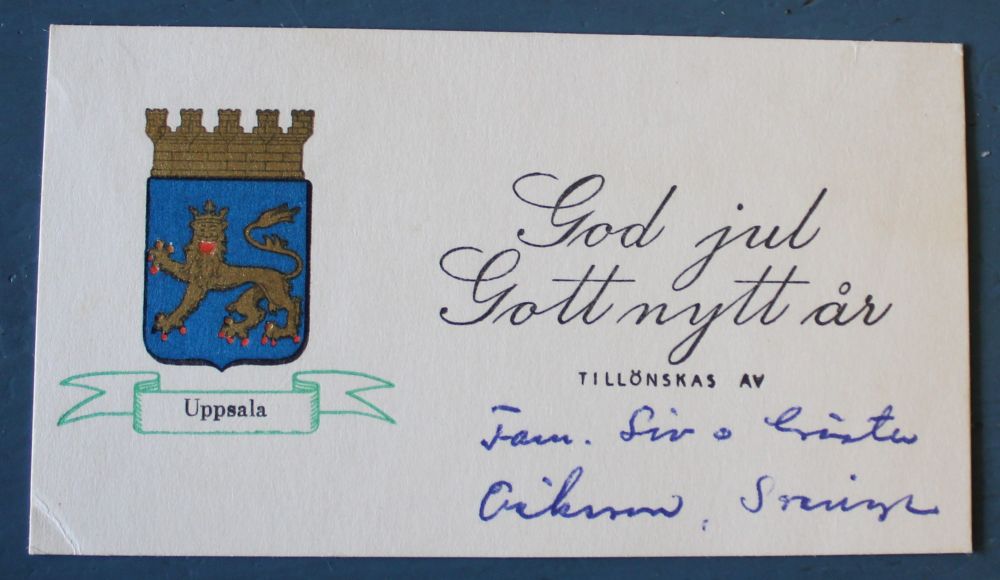 God jul
Gott nytt år
TILLÖNSKAS AV
Uppsala
Fam. Siv o Crister
Eriksson, Sverige